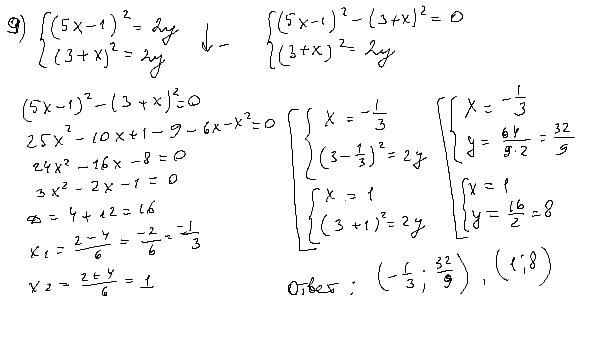 9) { (5x-1)² = 2y
(3+x)² = 2y
↓ -
{ (5x-1)² - (3+x)² = 0
(3+x)² = 2y
(5x-1)² - (3+x)² = 0
25x² - 10x + 1 - 9 - 6x - x² = 0
24x² - 16x - 8 = 0
3x² - 2x - 1 = 0
D = 4 + 12 = 16
x₁ = (2-4)/6 = -2/6 = -1/3
x₂ = (2+4)/6 = 1
[ { x = -1/3
(3 - 1/3)² = 2y
{ x = 1
(3+1)² = 2y
[ { x = -1/3
y = 64/(9·2) = 32/9
{ x = 1
y = 16/2 = 8
Ответ: (-1/3; 32/9), (1; 8)